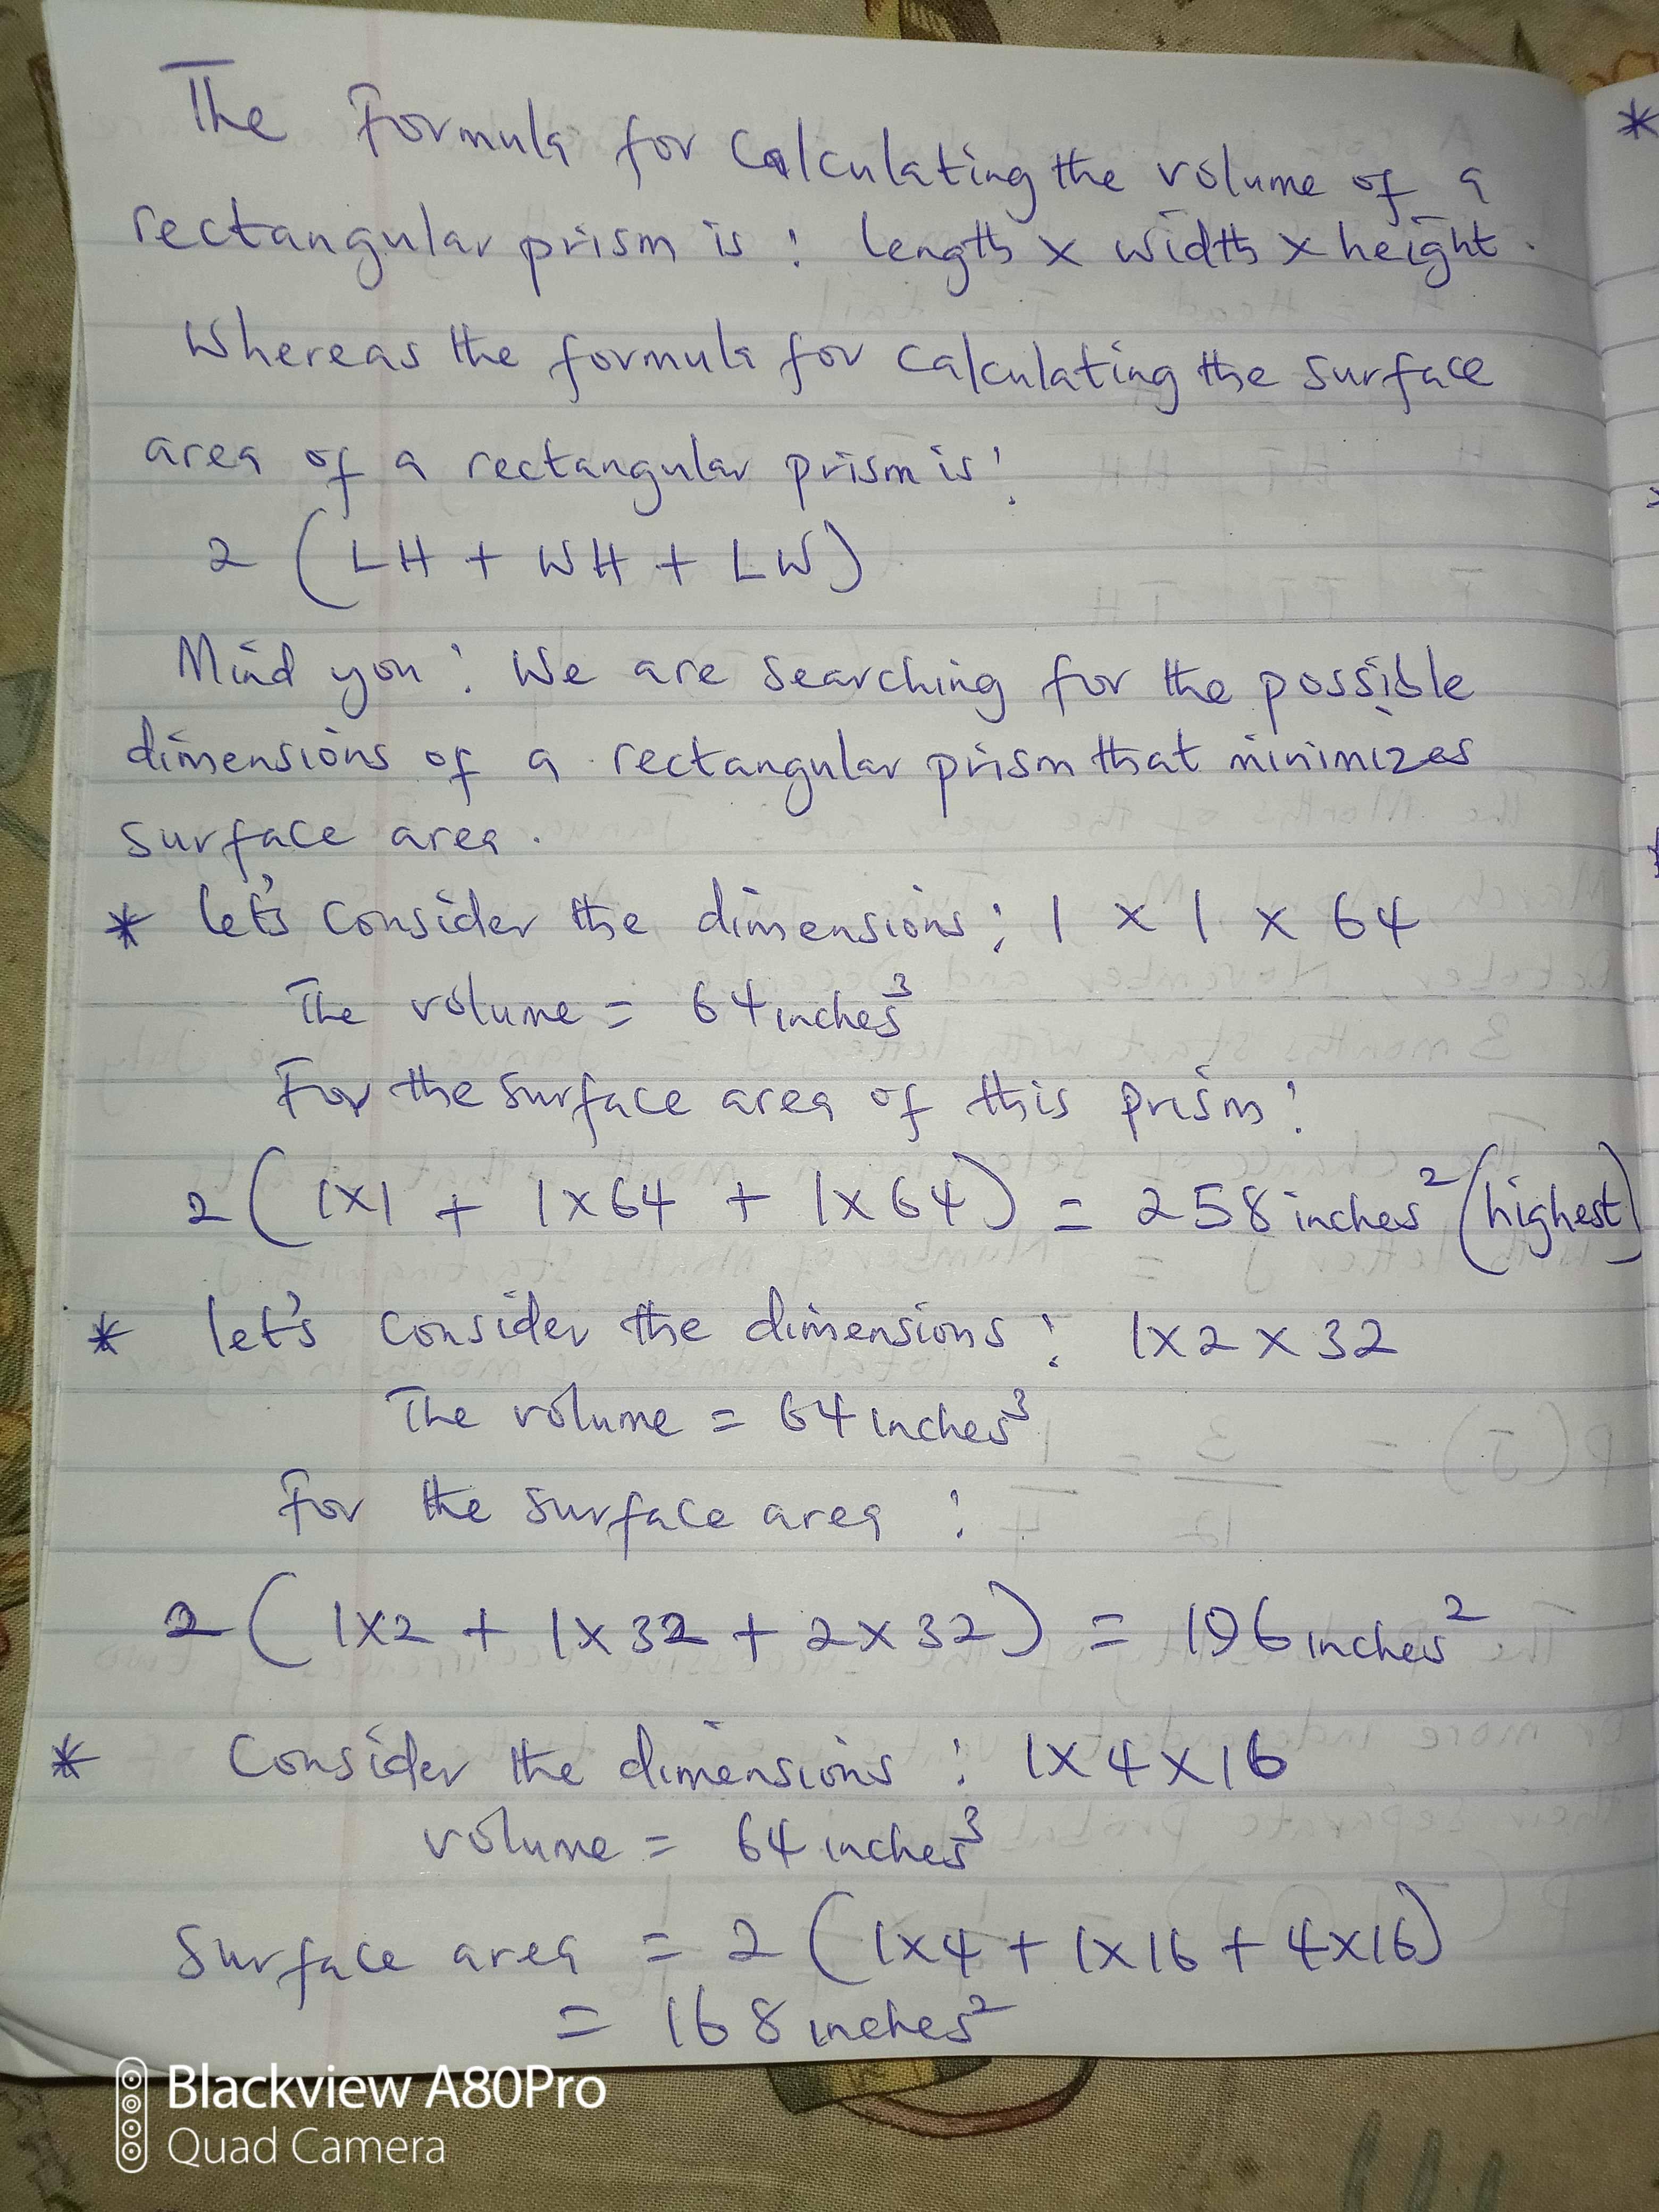 The Formula for Calculating the volume of a
rectangular prism is: length x width x height.
Whereas the formula for Calculating the surface
area of a rectangular prism is:
2 (LH + WH + LW)
Mind you: We are searching for the possible
dimensions of a rectangular prism that minimizes
surface area.
* let's consider the dimensions: 1 x 1 x 64
The volume = 64 inches³
For the surface area of this prism:
2 (1x1 + 1x64 + 1x64) = 258 inches² (highest)
* let's consider the dimensions: 1x2x32
The volume = 64 inches³
For the surface area:
2 (1x2 + 1x32 + 2x32) = 196 inches²
* Consider the dimensions: 1x4x16
volume = 64 inches³
Surface area = 2 (1x4 + 1x16 + 4x16)
= 168 inches²
Blackview A80Pro
Quad Camera